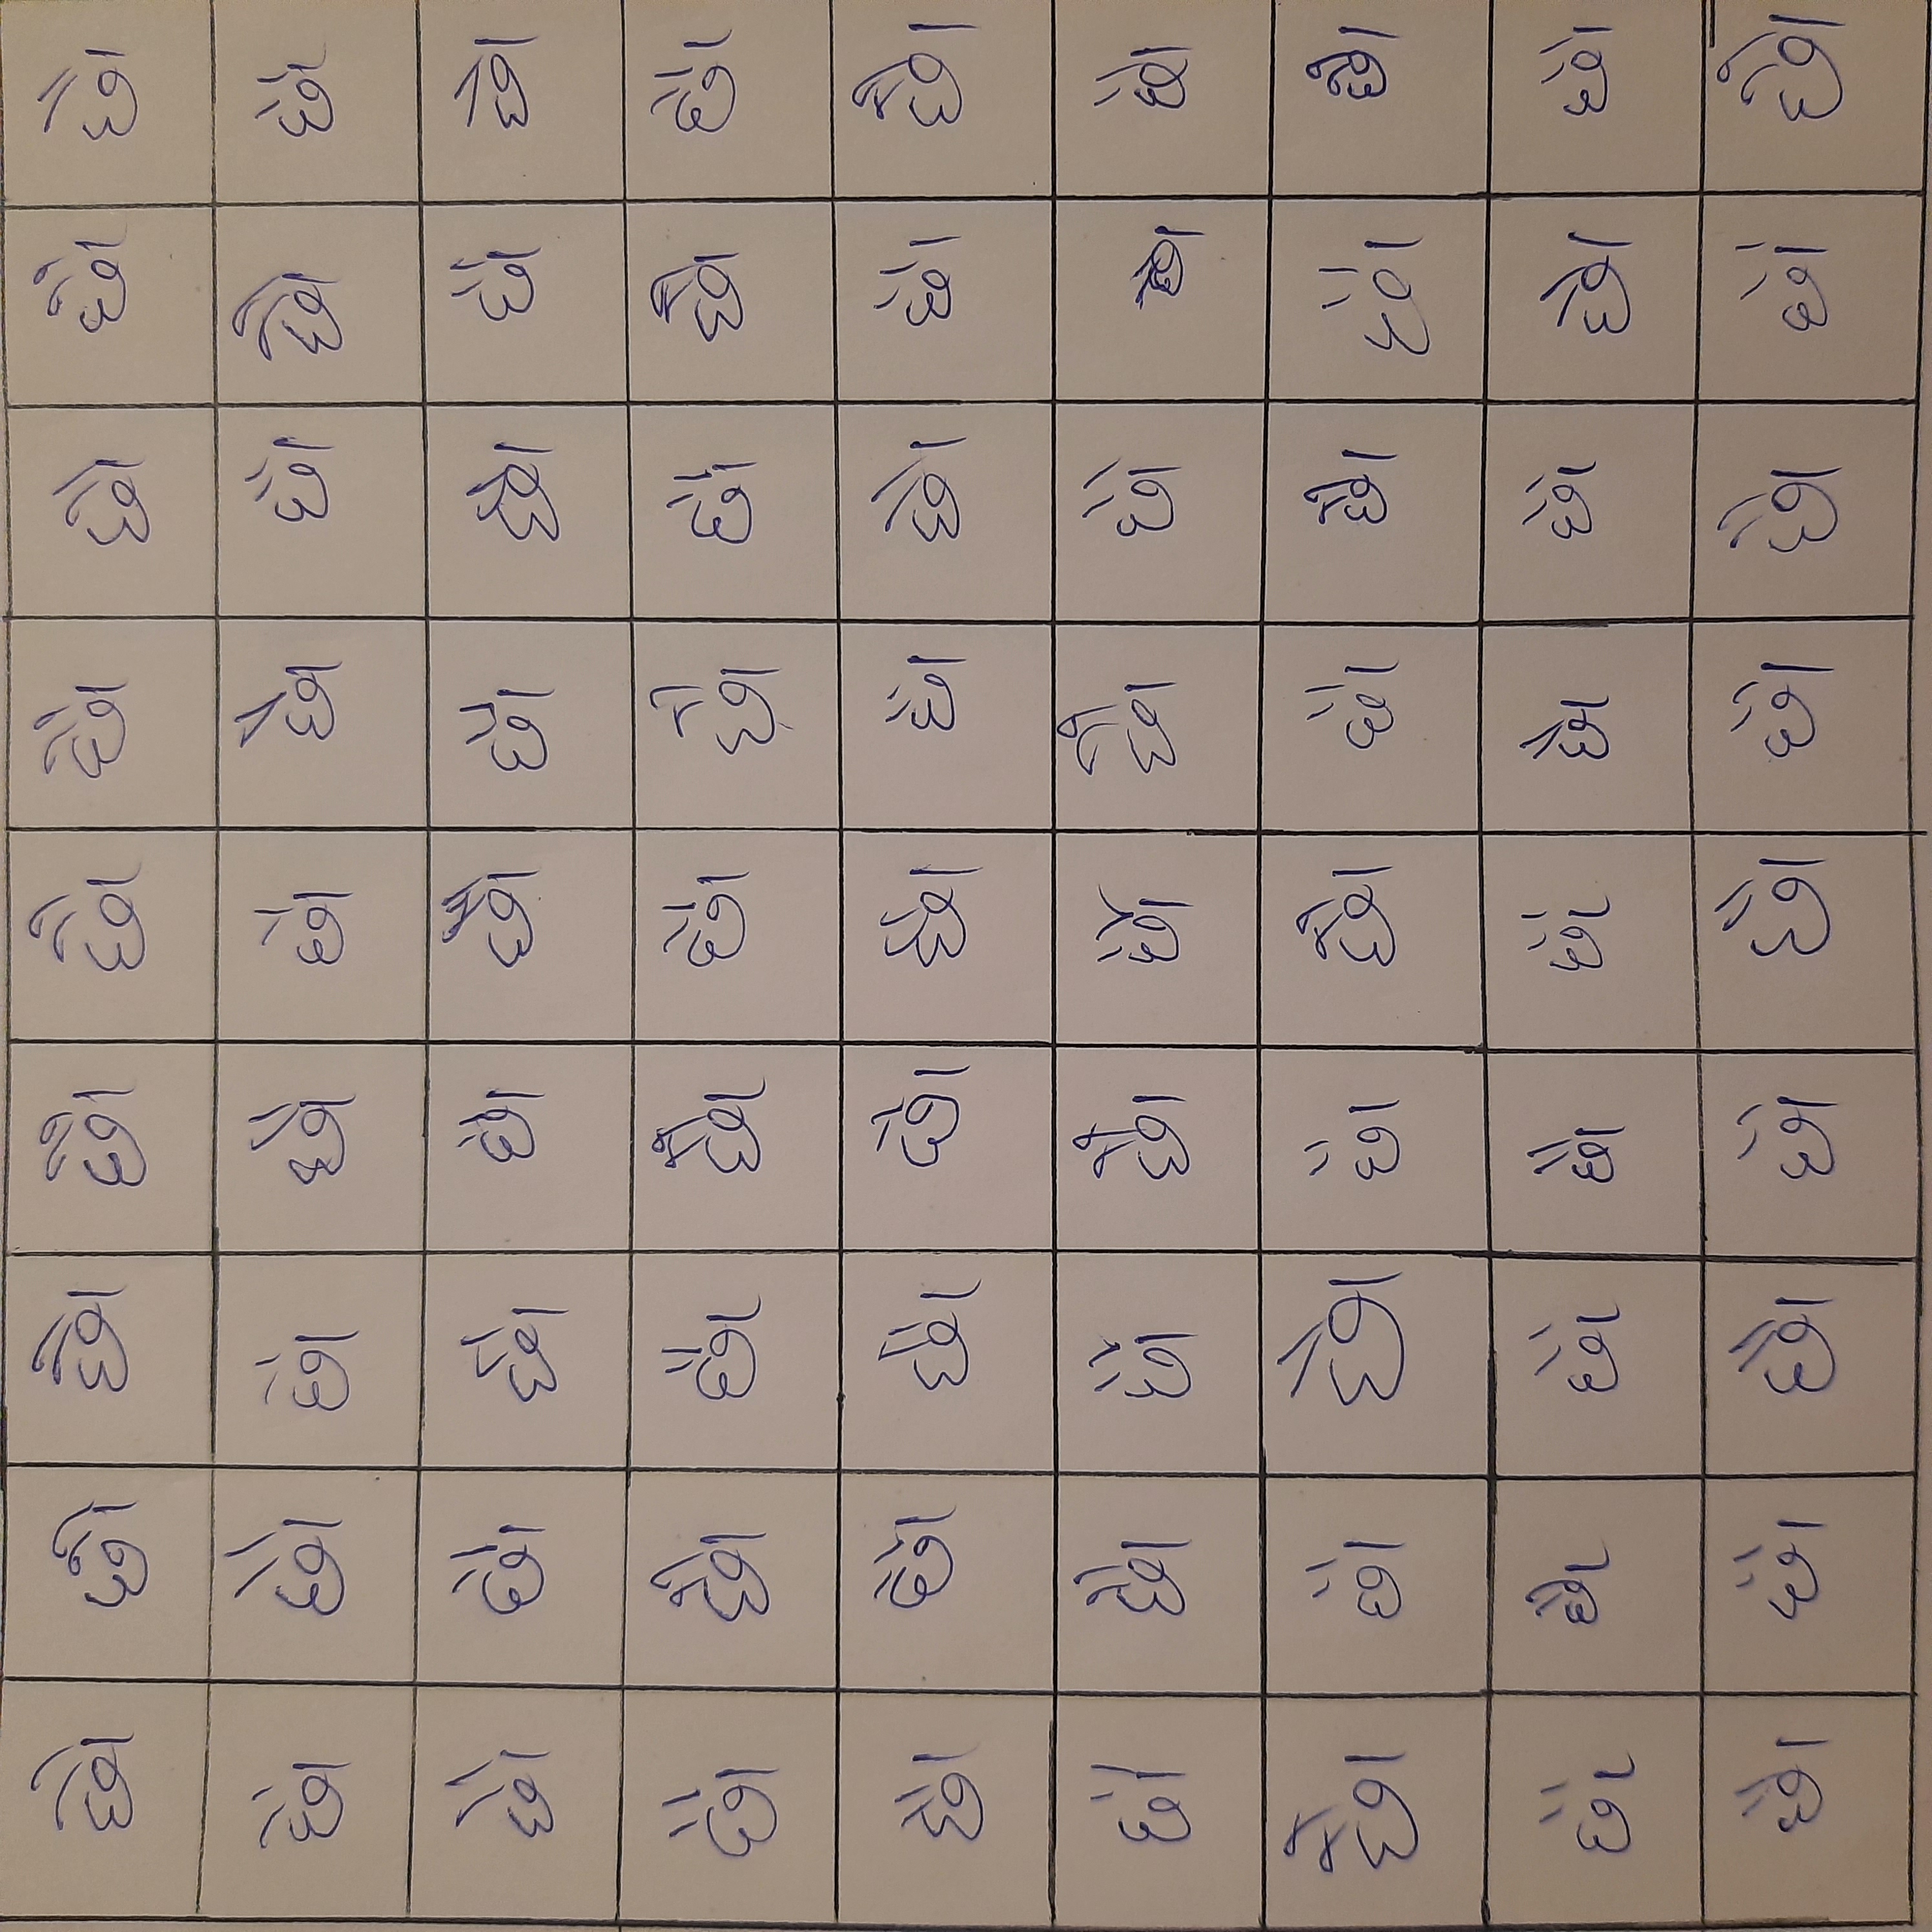 છૌ છૌ છૌ છૌ છૌ છૌ છૌ છૌ છૌ
છૌ છૌ છૌ છૌ છૌ છૌ છૌ છૌ છૌ
છૌ છૌ છૌ છૌ છૌ છૌ છૌ છૌ છૌ
છૌ છૌ છૌ છૌ છૌ છૌ છૌ છૌ છૌ
છૌ છૌ છૌ છૌ છૌ છૌ છૌ છૌ છૌ
છૌ છૌ છૌ છૌ છૌ છૌ છૌ છૌ
છૌ છૌ છૌ છૌ છૌ છૌ છૌ છૌ છૌ
છૌ છૌ છૌ છૌ છૌ છૌ છૌ છૌ છૌ
છૌ છૌ છૌ છૌ છૌ છૌ છૌ છૌ છૌ